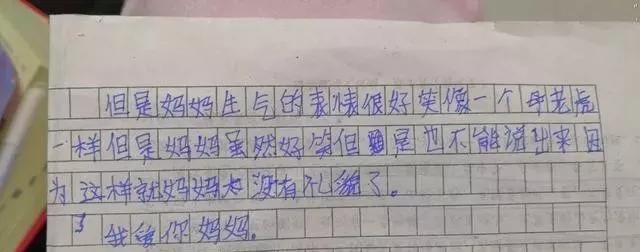 但是妈妈生气的表情很好笑像一个母老虎
一样但是妈妈虽然好笑但是也不能说出来因
为这样就妈妈没有礼貌了。
我爱你妈妈。